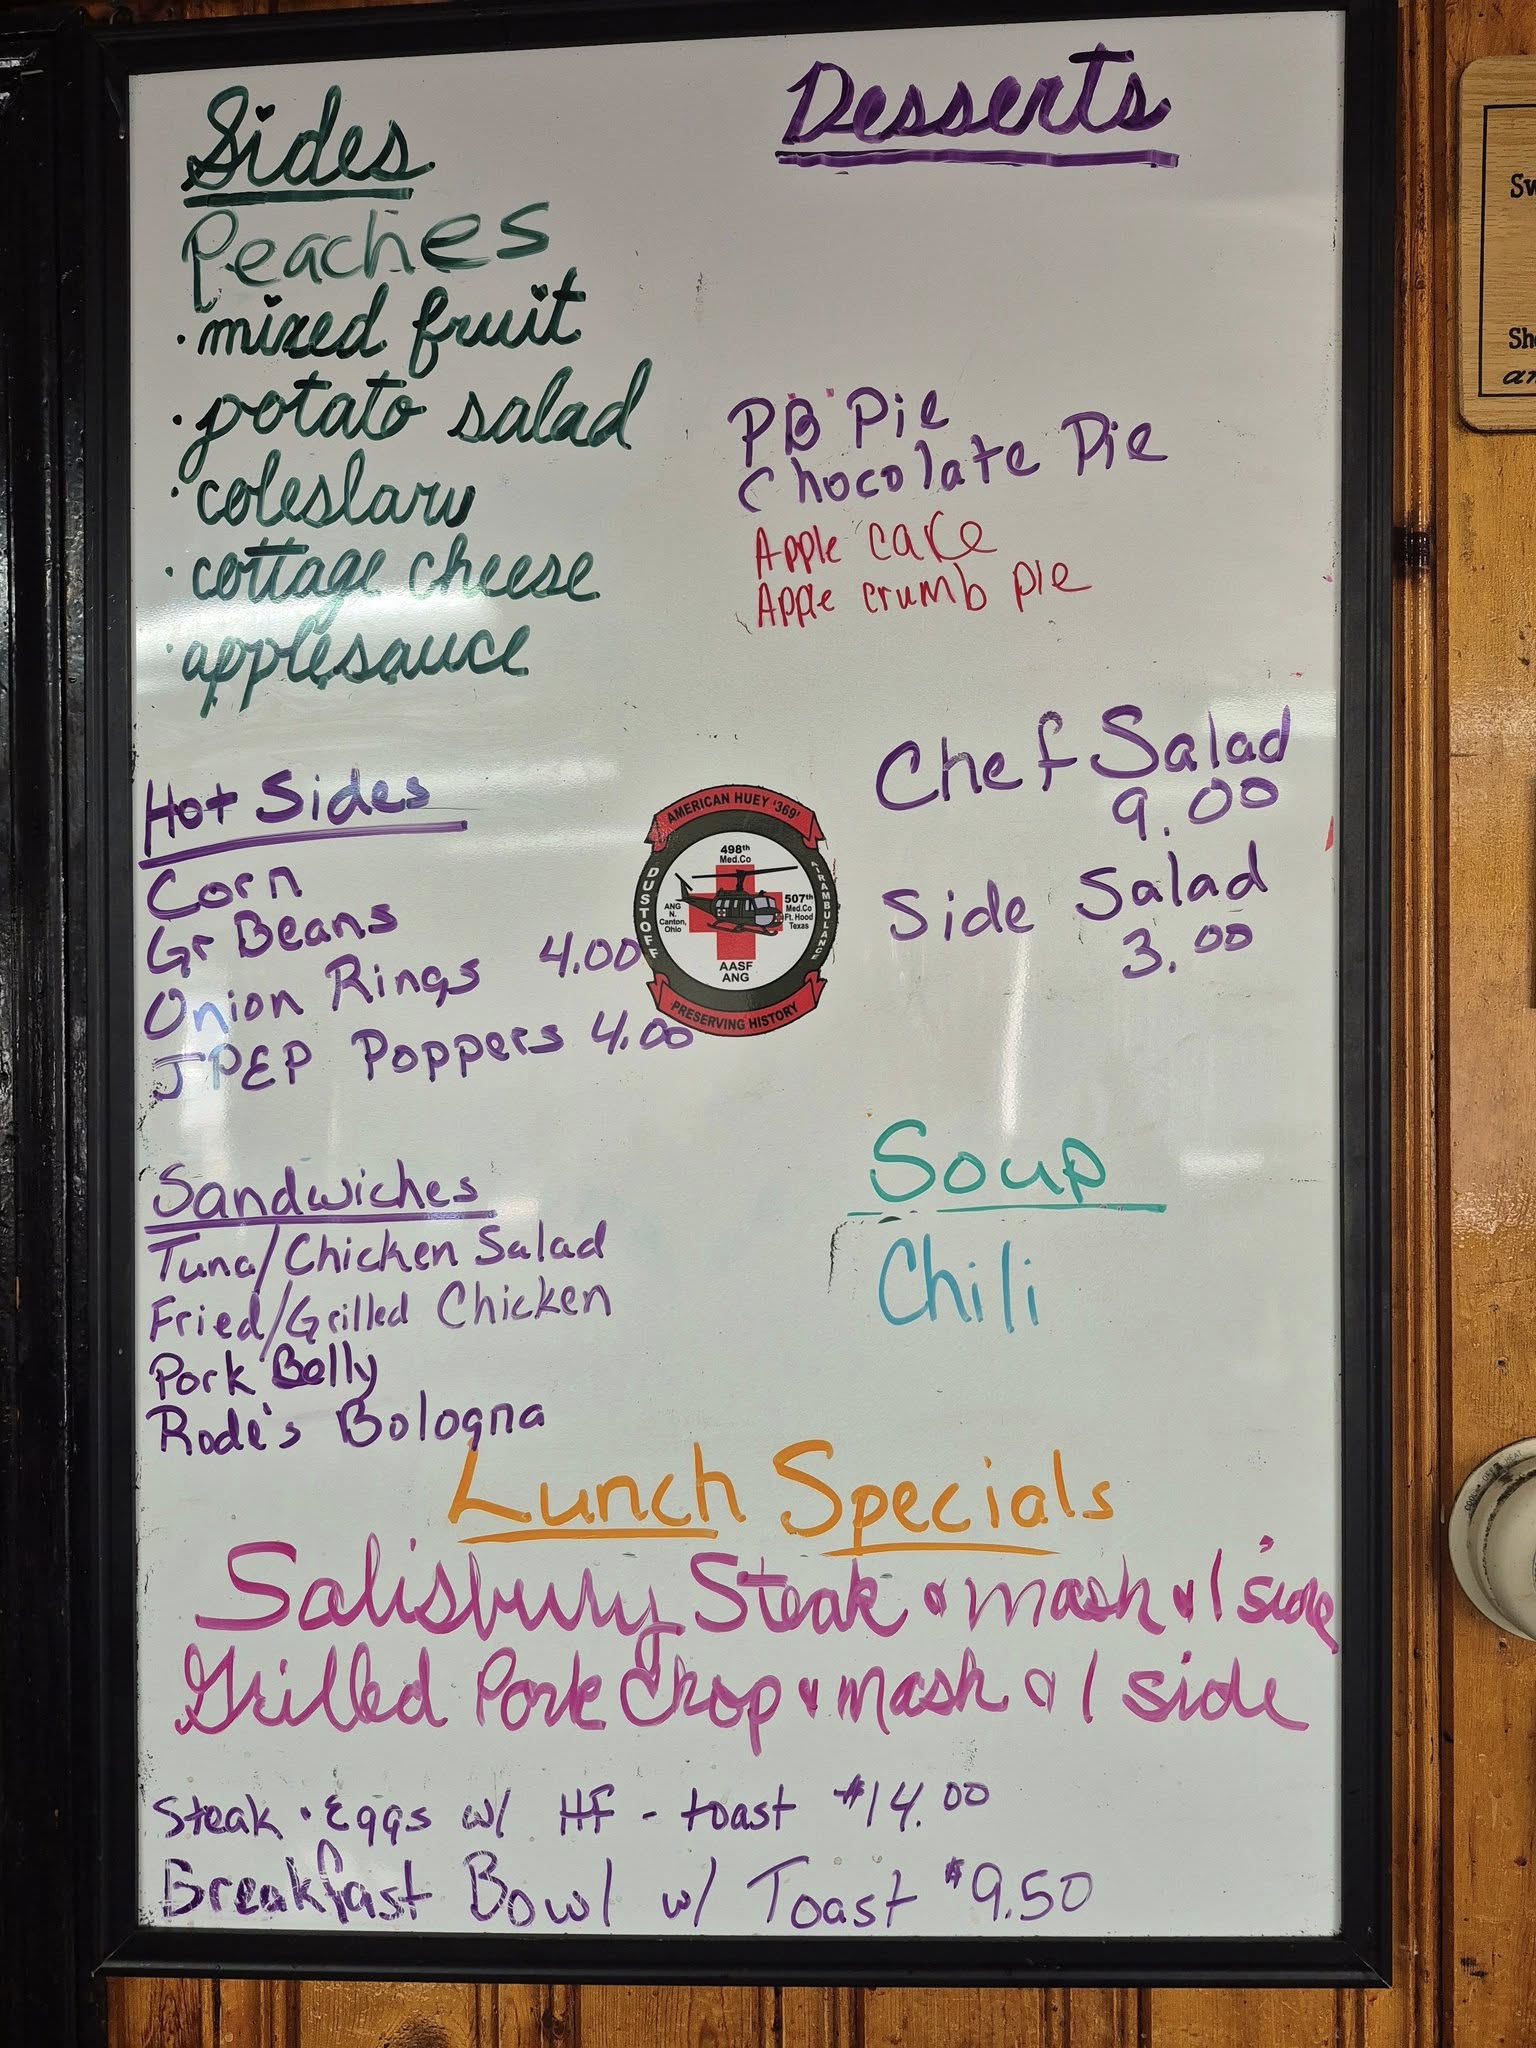 Sides
Peaches
· mixed fruit
· potato salad
· coleslaw
· cottage cheese
· applesauce
Desserts
PB Pie
Chocolate Pie
Apple cake
Apple crumb pie
Chef Salad
9.00
Side Salad
3.00
Hot Sides
Corn
Gr Beans
Onion Rings 4.00
JPEP Poppers 4.00
AMERICAN HUEY '369'
498th
Med.Co
DUSTOFF
AIRAMBULANCE
ANG
N.
Canton,
Ohio
507th
Med.Co
Ft. Hood
Texas
AASF
ANG
PRESERVING HISTORY
Sandwiches
Tuna/Chicken Salad
Fried/Grilled Chicken
Pork Belly
Rode's Bologna
Soup
Chili
Lunch Specials
Salisbury Steak & mash & 1 side
Grilled Pork Chop & mash & 1 side
Steak · Eggs w/ HF - toast $14.00
Breakfast Bowl w/ Toast $9.50
Sw
Sh
an